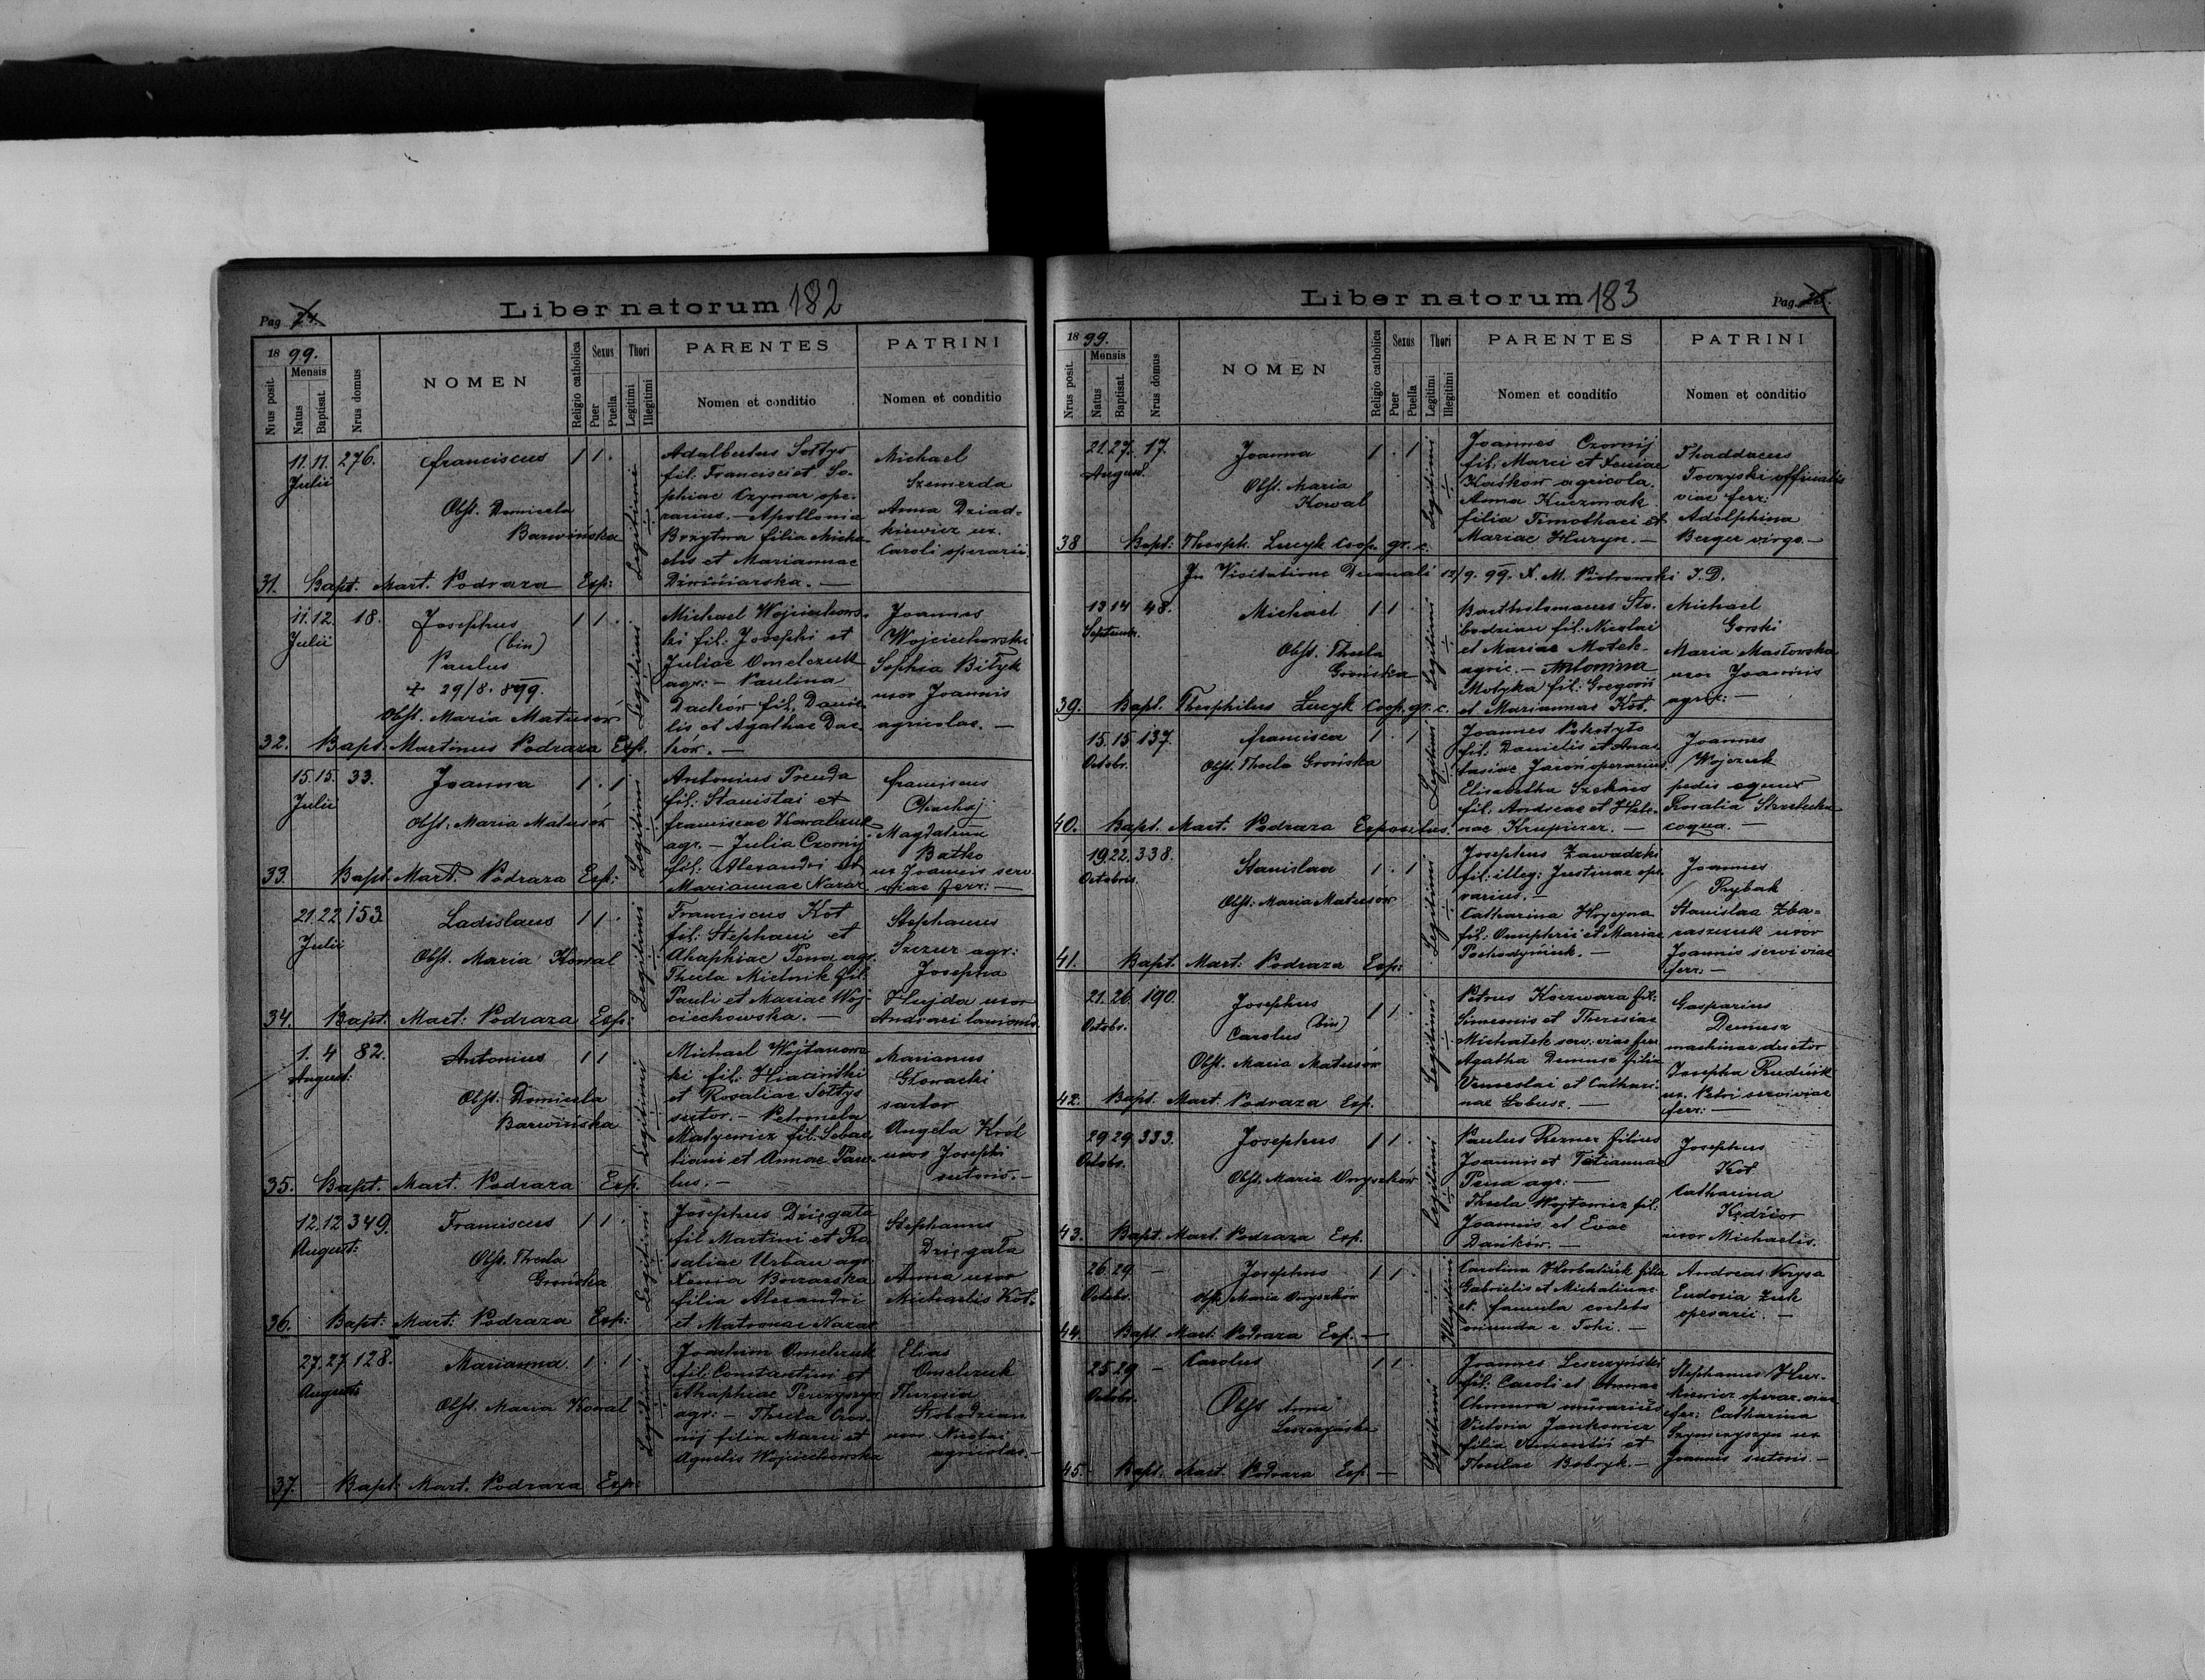 Pag. 24.
Liber natorum 182
1899.
Nrus posit.
Mensis
Natus
Baptisat.
Nrus domus
NOMEN
Religio catholica
Sexus
Puer
Puella
Thori
Legitimi
Illegitimi
PARENTES
Nomen et conditio
PATRINI
Nomen et conditio
11. 11. 276.
Julii
Franciscus
1 1 .
Obst. Domicela
Barwińska
Legitimi
Adalbertus Sołtys
fil. Francisci et So-
phiae Czynar ope-
rarius. — Apollonia
Brzytwa filia Micha-
elis et Mariannae
Dzwiniarska. —
Michael
Szemerda
Anna Dziad-
kiewicz ux.
Caroli operarii.
31. Bapt. Mart. Podraza Exp:
11. 12. 18.
Julii
Josephus
(bin)
Paulus
+ 29/8. 899.
1 1 .
Obst. Maria Matusów
Legitimi
Michael Wojciechows-
ki fil: Josephi et
Juliae Omelczuk
agr: — Paulina
Daćków fil. Danie-
lis et Agathae Dac-
ków. —
Joannes
Wojciechowski
Sophia Biłyk
uxor Joannis
agricolae. —
32. Bapt. Martinus Podraza Exp.
15. 15. 33.
Julii
Joanna
1 . 1
Obst: Maria Matusów
Legitimi
Antonius Preuda
fil: Stanislai et
Franciscae Kowalczuk
agr. — Julia Czornij
fil: Alexandri et
Mariannae Nazar
Franciscus
Magdalena
Batko
ux Joannis serv.
viae ferr: —
33. Bapt. Mart. Podraza Exp:
21. 22. 153.
Julii
Ladislaus
1 1 .
Obst. Maria Kowal
Legitimi
Franciscus Kot
fil: Stephani et
Ahaphiae Pena agr.
Thecla Mielnik fil:
Pauli et Mariae Woj-
ciechowska. —
Stephanus
Szczur agr:
Josepha
Hujda uxor
Andraei lanionis.
34. Bapt. Mart: Podraza Exp:
1. 4 82.
August:
Antonius
1 1
Obst. Domicela
Barwińska
Legitimi
Michael Wojtanows-
ki fil: Hiacinthi
et Rosaliae Sołtys
sutor. — Petronela
Matyewicz fil: Sebas-
tiani et Annae Paw-
lus. —
Marianus
Głowacki
sartor
Angela Król
uxor Josephi
sutoris. —
35. Bapt. Mart. Podraza Exp.
12. 12 349.
August:
Franciscus
1 1 .
Obst. Thecla
Grońska
Legitimi
Josephus Dzięgała
fil Martini et Ro-
saliae Urban agr.
Xenia Bovzarska
filia Alexandri
et Matronae Nazar
Stephanus
Dzięgała
Anna uxor
Michaelis Kot.
36. Bapt: Mart: Podraza Exp:
27. 27. 128.
Augusti
Marianna
1 . 1.
Obst. Maria Kowal
Legitimi
Joachim Omelczuk
fil: Constantini et
Ahaphiae Perczyszyn
agr: — Thecla Czor-
nij filia Marci et
Agnetis Wojciechowska
Elias
Omelczuk
Theresia
Słobodzian
uxor Nicolai
agricolae. —
37. Bapt: Mart. Podraza Exp:
Liber natorum 183
Pag. 25.
1899.
Nrus posit.
Mensis
Natus
Baptisat.
Nrus domus
NOMEN
Religio catholica
Sexus
Puer
Puella
Thori
Legitimi
Illegitimi
PARENTES
Nomen et conditio
PATRINI
Nomen et conditio
21. 27. 17.
August.
Joanna
1 . 1
Obst. Maria
Kowal
Legitimi
Joannes Czornij
fil: Marci et Xeniae
Kaśków agricola.
Anna Kuczmak
filia Timothaei et
Mariae Huryn. —
Thaddaeus
Toczyski officialis
viae ferr:
Adolphina
Berger virgo. —
38 Bapt: Theoph. Lucyk Coop. gr. c.
In Visitatione Decanali 12/9. 99. X. M. Piotrowski I. D.
13 14 48.
Septemb.
Michael
1 1 .
Obst. Thecla
Grońska
Legitimi
Bartholomaeus Sło-
bodzian fil: Nicolai
et Mariae Motek-
agric. — Antonina
Motyka fil: Gregorii
et Mariannae Kot.
Michael
Gorski
Maria Masłowska
uxor Joannis
agric: —
39. Bapt. Theophilus Lucyk Coop. gr. c.
15. 15. 137.
Octobr.
Francisca
1 . 1
Obst. Thecla Grońska
Legitimi
Joannes Pokotyło
fil: Danielis et Anas-
tasiae Jaroń operarius.
Elisabetha Szekais
fil. Andreae et Hele-
nae Krupiczer. —
Joannes
Wojczuk
Rosalia Strzelecka
coqua. —
40. Bapt. Mart. Podraza Expositus.
19. 22. 338.
Octobris
Stanislaa
1 . 1
Obst: Maria Matusów
Legitimi
Josephus Zawadzki
fil: illeg: Justinae ope-
rarius. —
Catharina Hrycyna
fil: Onuphrii et Mariae
Pochodyniuk. —
Joannes
Rybak
Stanislaa Zba-
raszczuk uxor
Joannis servi viae
ferr: —
41. Bapt. Mart: Podraza Exp:
21. 26. 190.
Octobr.
Josephus
Carolus (bin)
1 1 .
Obst. Maria Matusów
Legitimi
Petrus Koczwara fil:
Simeonis et Theresiae
Michałek serv. viae ferr.
Agatha Demusz filia
Venceslai et Cathari-
nae Łobusz. —
Gasparius
Demusz
machinae ductor
Josepha Rudnik
ux. Petri servi viae
ferr: —
42. Bapt. Mart. Podraza Exp.
29. 29. 333.
Octobr.
Josephus
1 1 .
Obst. Maria Onyszków
Legitimi
Paulus Rezner filius
Joannis et Tatiannae
Pena agr: —
Thecla Wojtowicz fil:
Joannis et Evae
Dańków. —
Josephus
Kot
Catharina
Kędzior
uxor Michaelis.
43. Bapt. Mart. Podraza Exp.
26. 29 —
Octobr.
Josephus
1 1 .
Obst. Maria Onyszków
Illegitimi
Carolina Horbatiuk filia
Gabrielis et Michalinae
famula coelebs
oriunda e Toki. —
Andreas Krysa
Eudosia Żuk
operarii. —
44. Bapt. Mart: Podraza Exp. —
25 29 —
Octobr.
Carolus
1 1 .
Obst Anna
Leszczyńska
Legitimi
Joannes Leszczyński
fil: Caroli et Annae
Chmura murarius
Victoria Jankowicz
filia Vincentii et
Theclae Bobryk. —
Stephanus Hry-
kiewicz operar. viae
ferr: Catharina
Szymczyszyn ux
Joannis sutoris. —
45. Bapt. Mart. Podraza Exp —